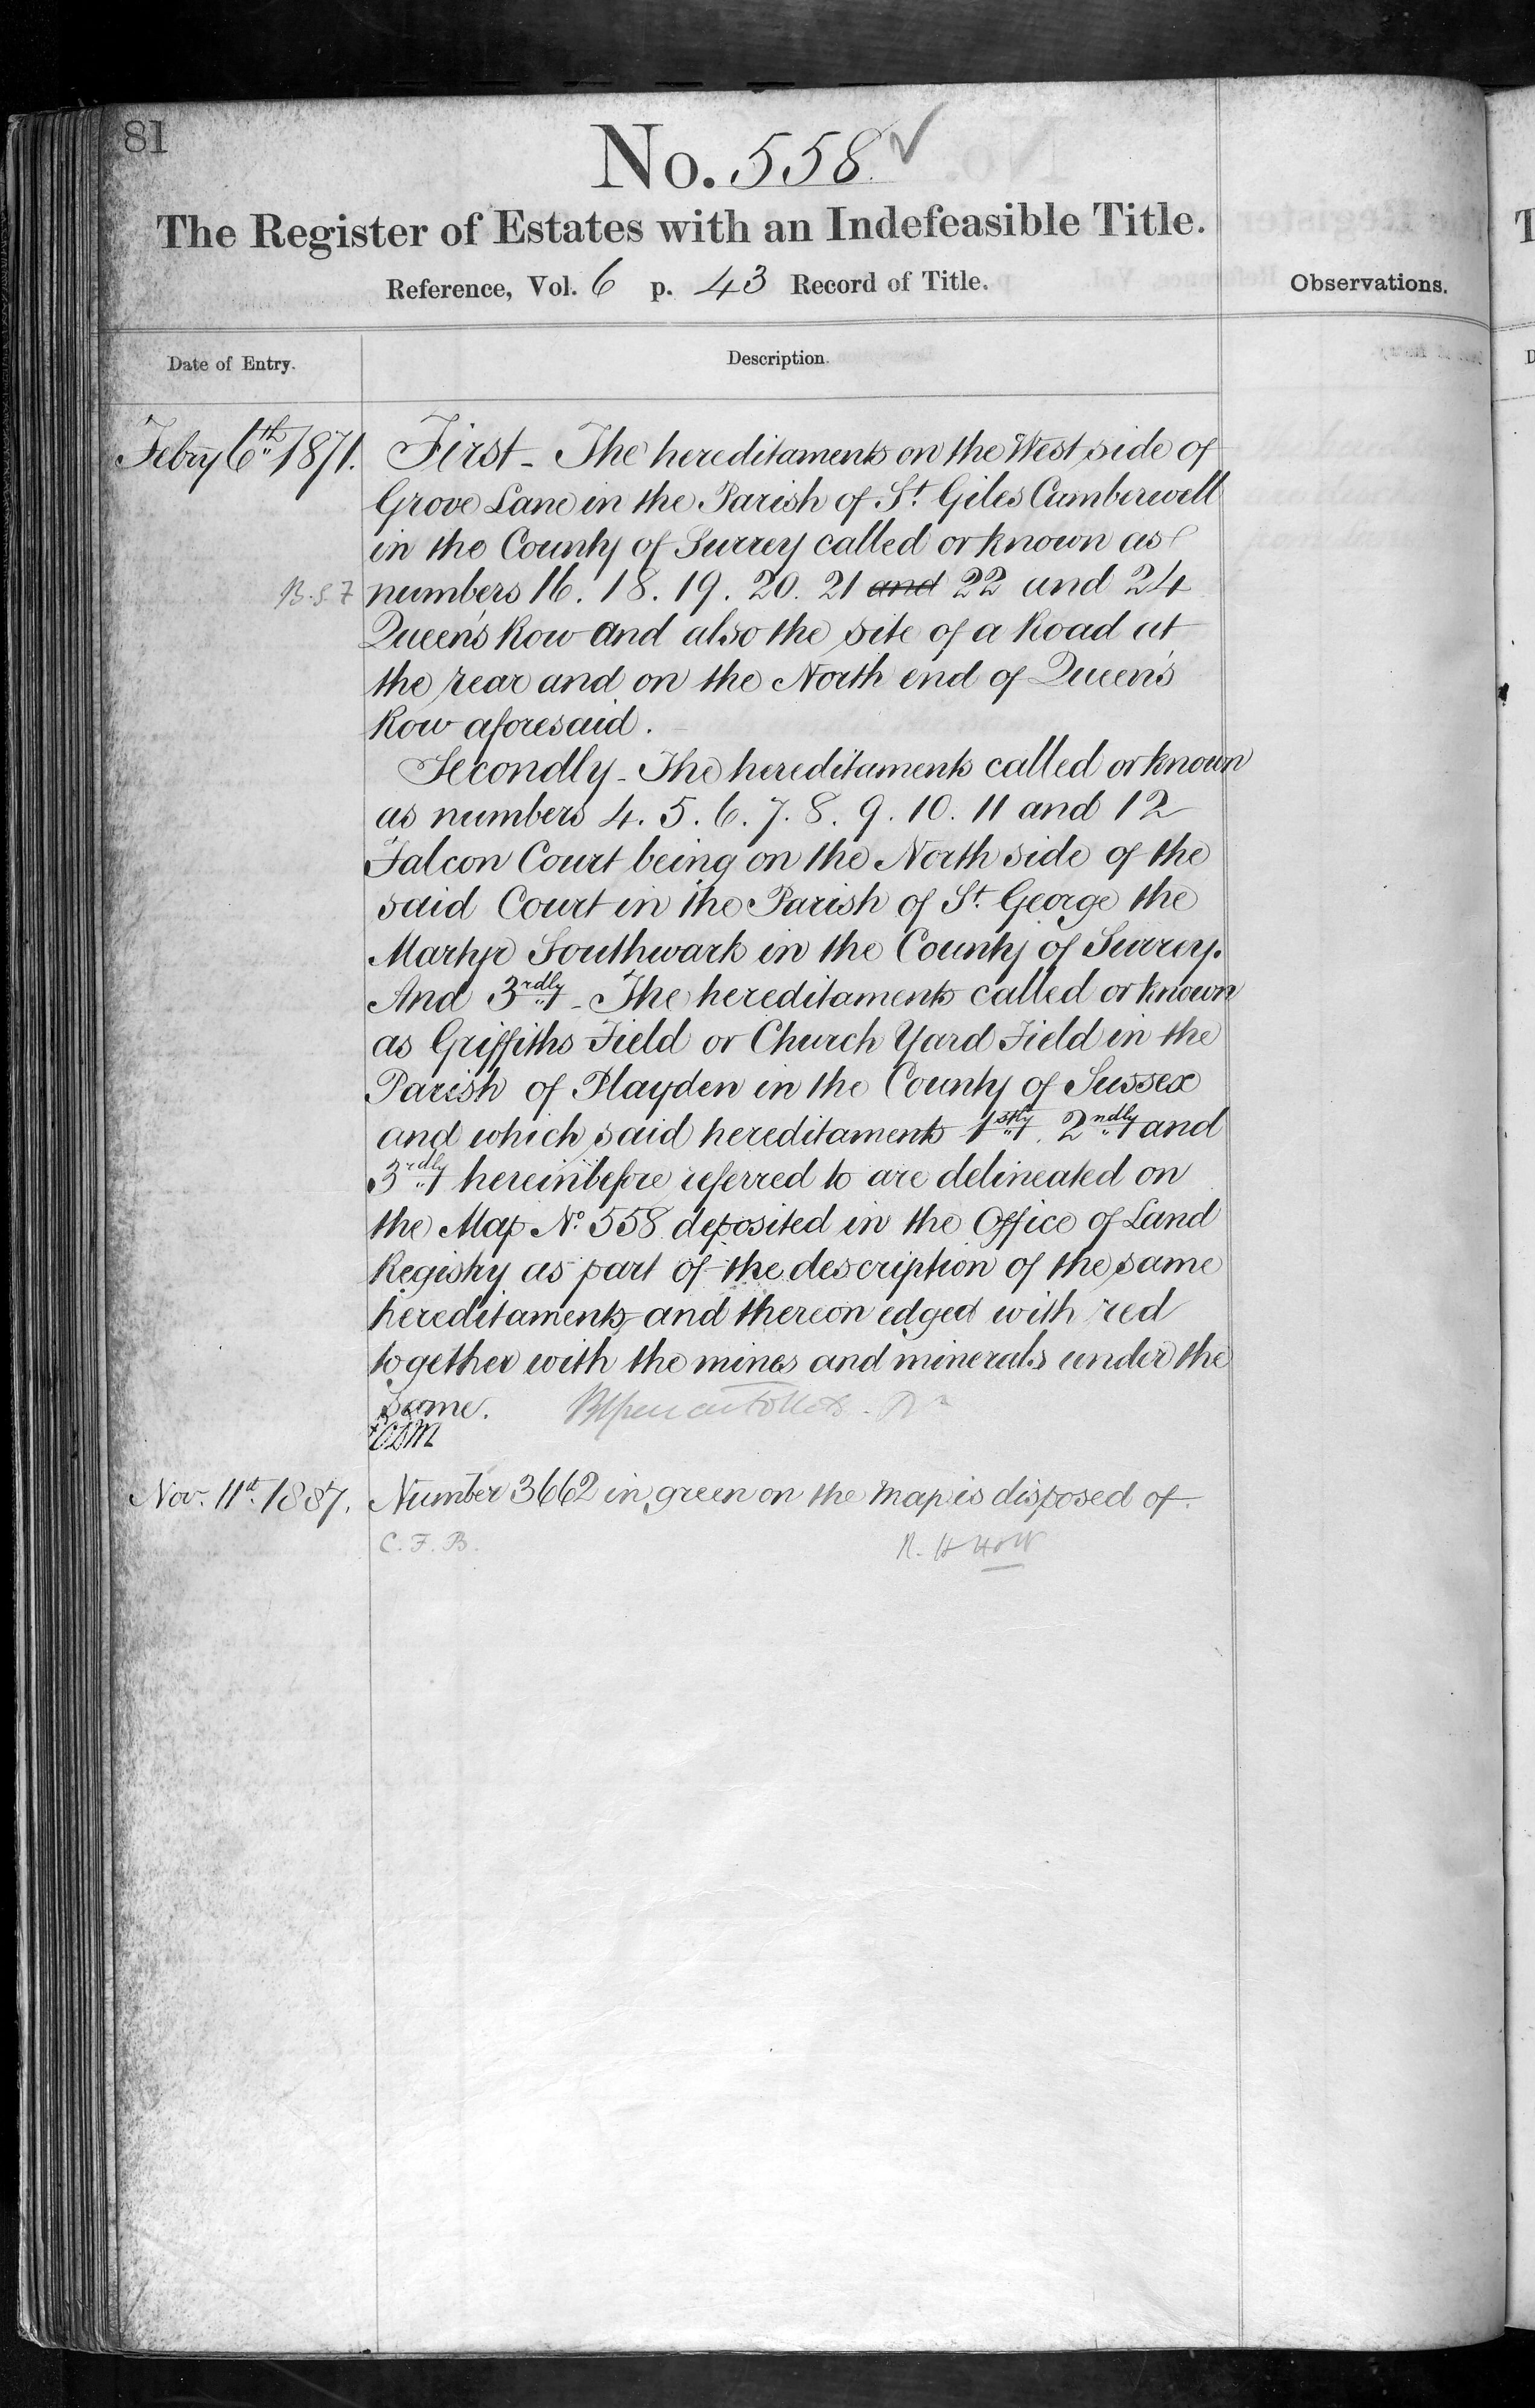 81
No. 558 ✓
The Register of Estates with an Indefeasible Title.
Reference, Vol. 6 p. 43 Record of Title.
Observations.
Date of Entry.
Description.
Febry 6th 1871.
First - The hereditaments on the West side of
Grove Lane in the Parish of St. Giles Camberwell
in the County of Surrey called or known as
B.S.7
numbers 16. 18. 19. 20. 21 and 22 and 24
Queen's Row and also the site of a Road at
the rear and on the North end of Queen's
Row aforesaid.
Secondly - The hereditaments called or known
as numbers 4. 5. 6. 7. 8. 9. 10. 11 and 12
Falcon Court being on the North side of the
said Court in the Parish of St. George the
Martyr Southwark in the County of Surrey.
And 3rdly - The hereditaments called or known
as Griffiths Field or Church Yard Field in the
Parish of Playden in the County of Sussex
and which said hereditaments 1stly. 2ndly and
3rdly hereinbefore referred to are delineated on
the Map No. 558 deposited in the Office of Land
Registry as part of the description of the same
hereditaments and thereon edged with red
together with the mines and minerals under the
same.
Nov. 11th 1887.
Number 3662 in green on the Map is disposed of.
C. F. B.
R. H Holt